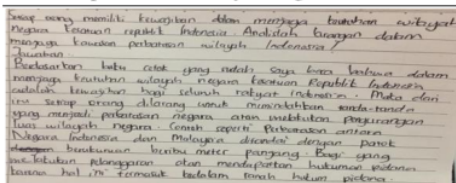 Setiap orang memiliki kewajiban dalam menjaga keutuhan wilayah
negara kesatuan republik Indonesia. Analisislah larangan dalam
menjaga kawasan perbatasan wilayah Indonesia!
Jawaban
Berdasarkan buku cetak yang sudah saya baca bahwa dalam
menjaga keutuhan wilayah negara kesatuan Republik Indonesia
adalah kewajiban bagi seluruh rakyat Indonesia. Maka dari
ini setiap orang dilarang untuk memindahkan tanda-tanda
yang menjadi perbatasan negara atau melakukan pengurangan
luas wilayah negara. Contoh seperti Perbatasan antara
Negara Indonesia dan Malaysia ditandai dengan patok
berukuran beribu meter panjang. Bagi yang
melakukan pelanggaran akan mendapatkan hukuman pidana
karena hal ini termasuk kedalam ranah hukum pidana.